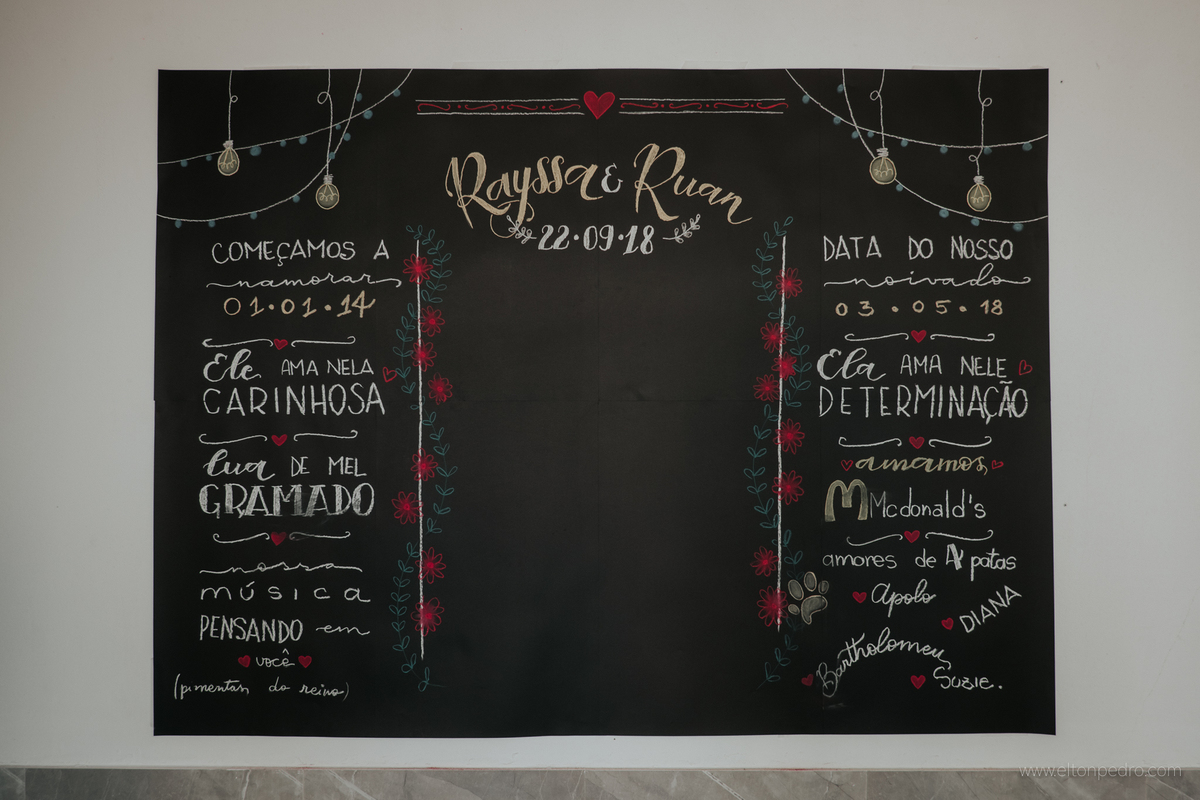 Rayssa & Ruan
22·09·18
COMEÇAMOS A
namorar
01·01·14
Ele AMA NELA
CARINHOSA
lua DE MEL
GRAMADO
nossa
música
PENSANDO em
você
(pimentas do reino)
DATA DO NOSSO
noivado
03·05·18
Ela AMA NELE
DETERMINAÇÃO
amamos
M Mcdonald's
amores de 4 patas
Apolo
DIANA
Bartholomeu
Suzie.
www.eltonpedro.com